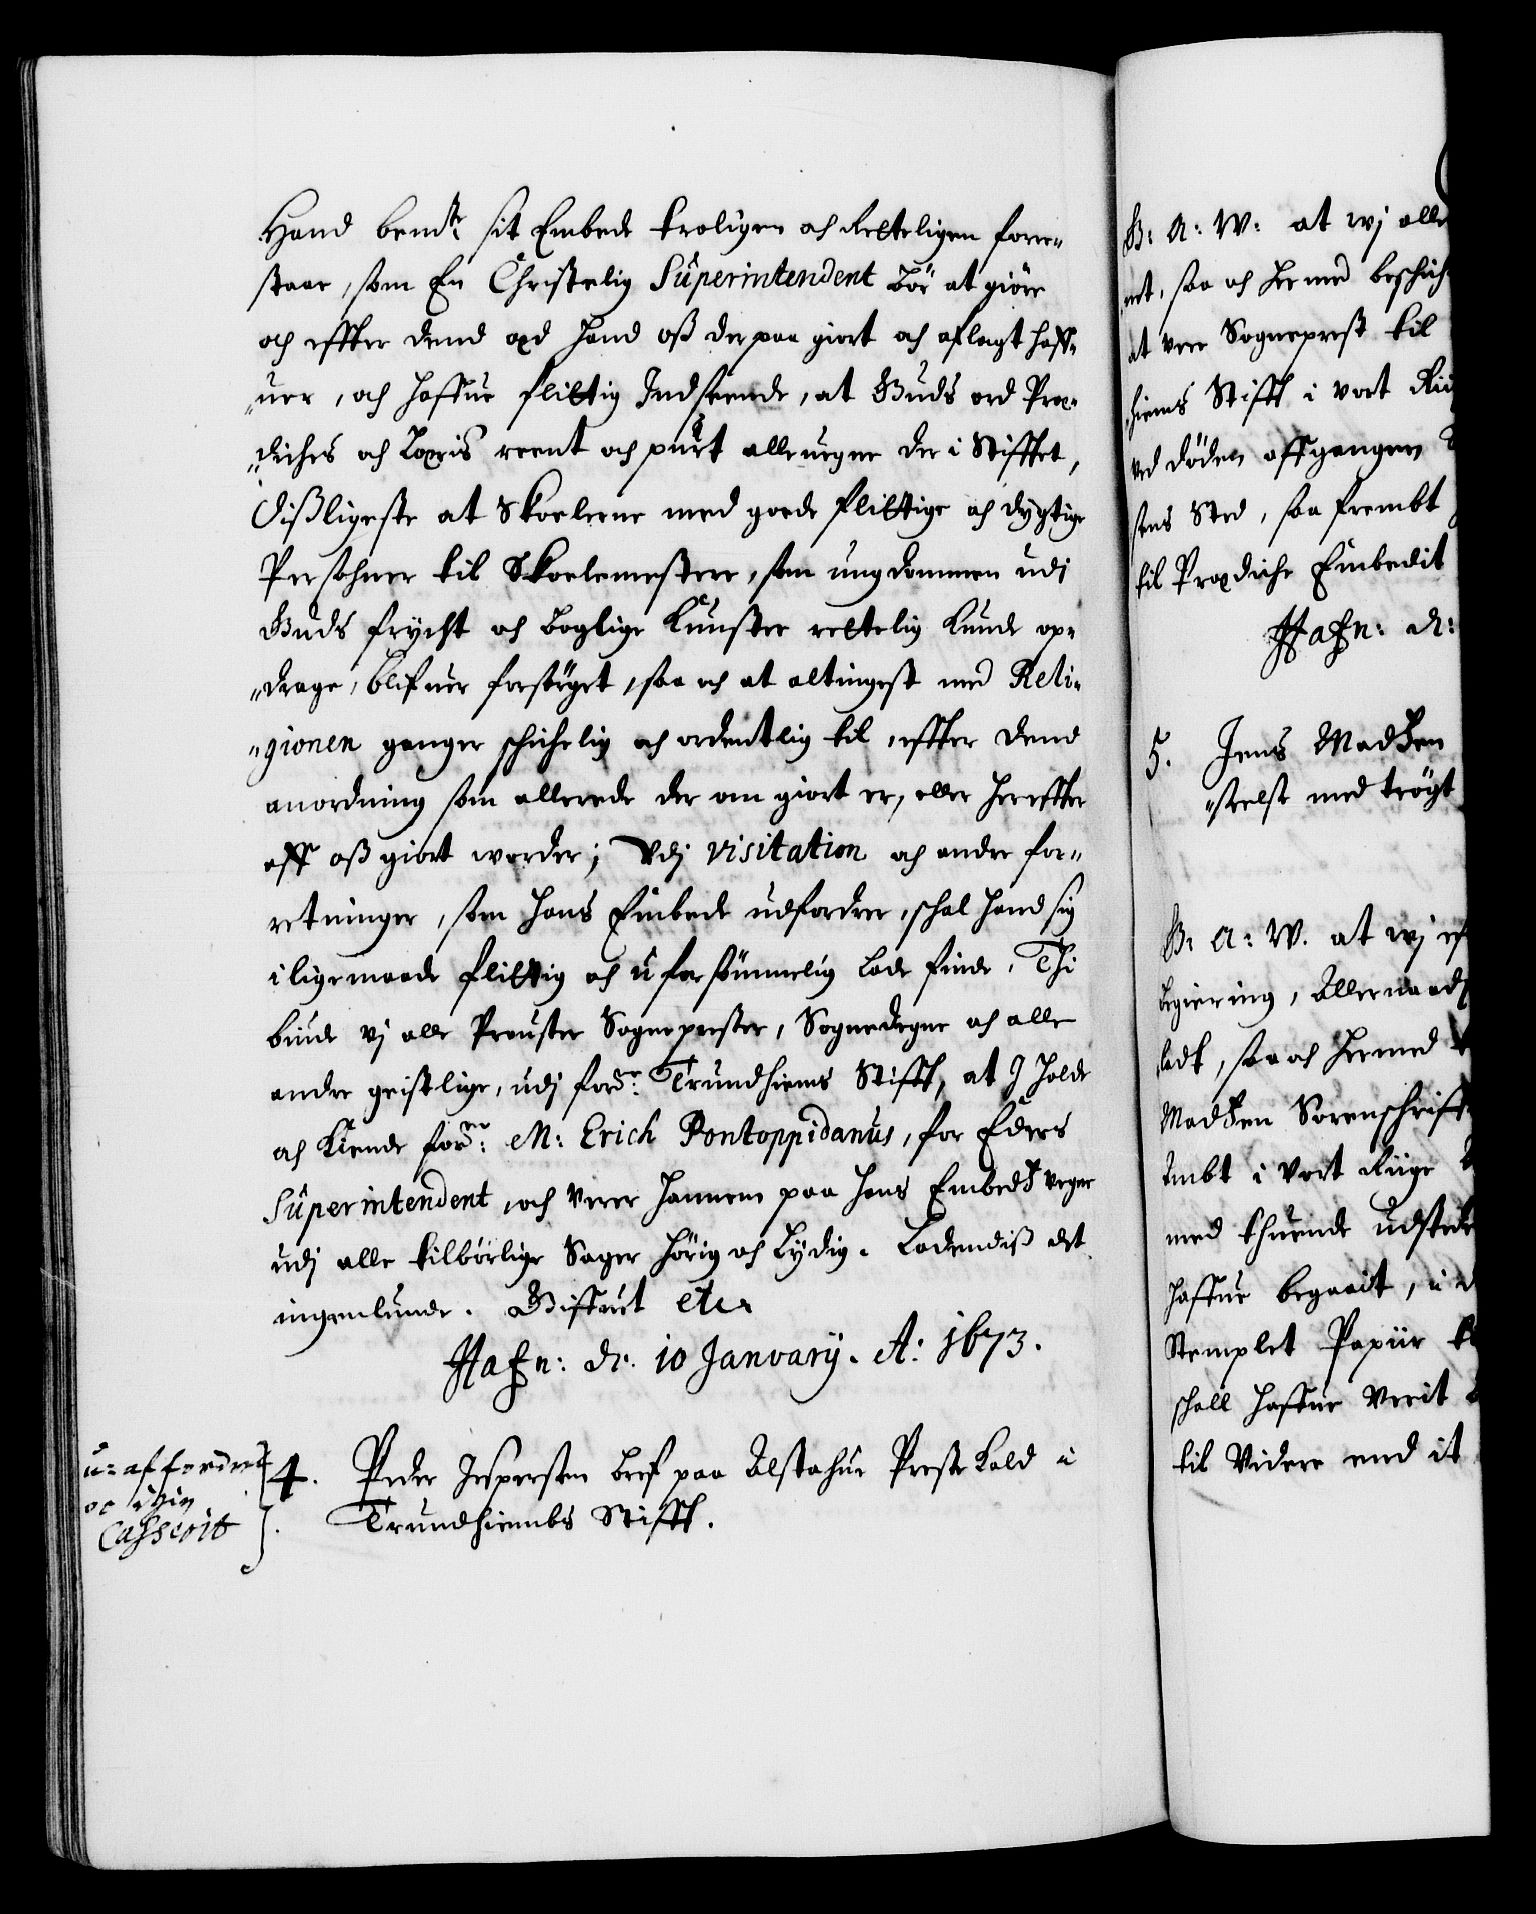 Hand bemte sit Embede troligen och Retteligen fore-
staar, som En Christelig Superintendent bör at giöre
och effter dend æd hand oß der paa giort och aflagt haff-
uer, och haffue flittig Indseende, at Guds ord Præ-
diches och Læris reent och purt alleuegne der i Stifftet,
dißligeste at Skoelerne med goede flittige och dygtige
Persohner til Skoelemestere, som ungdommen udi
Guds frycht och boglige Kunster rettelig kunde op-
drage, blifuer forsörget, saa och at altingest med Reli-
gionen ganger schichelig och ordentlig til, effter dend
anordning som allerede der om giort er, eller hereffter
aff oß giort worder; Udj visitation och andre for-
retninger, som hans Embede udfordrer, schal hand sig
i ligemaade flittig och uforsömmelig lade finde, Thi
biude vj alle Prouster Sogneprester, Sognedegne och alle
andre geistlige, udj fordne: Trundhiems Stifft, at J holde
och kiende fordne: M: Erich Pontoppidanus, for Eders
Superintendent, och verer hannem paa hans Embeds vegne
udj alle tilbörlige Sager hörig och Lydig. Ladendiß det
ingenlunde. Giffuet etc.
Hafn: d: 10 January. A: 1673.
u: affordret
oc igien
Casserit
4. Peder Jespersen bref paa Alstahue Preste Kald i
Trundhiembs Stifft.
G: A: W: at wj alle
net, saa och hermed beschich
at vere Sogneprest til
hiems Stifft i vort Rii
ved döden affgangen
sens Sted, saa frembt
til Prædiche Embedit
Hafn: d:
5. Jens Madsen
stelse med trögt
G: A: W. at wj ef
Regiering, Allernaad
ladt, saa och hermed
Madsen Sorenschrif
Ambt i vort Riige
med thuende udstede
haffue begaait, i d
Stemplet Papiir
schall haffue verit
til Videre end it